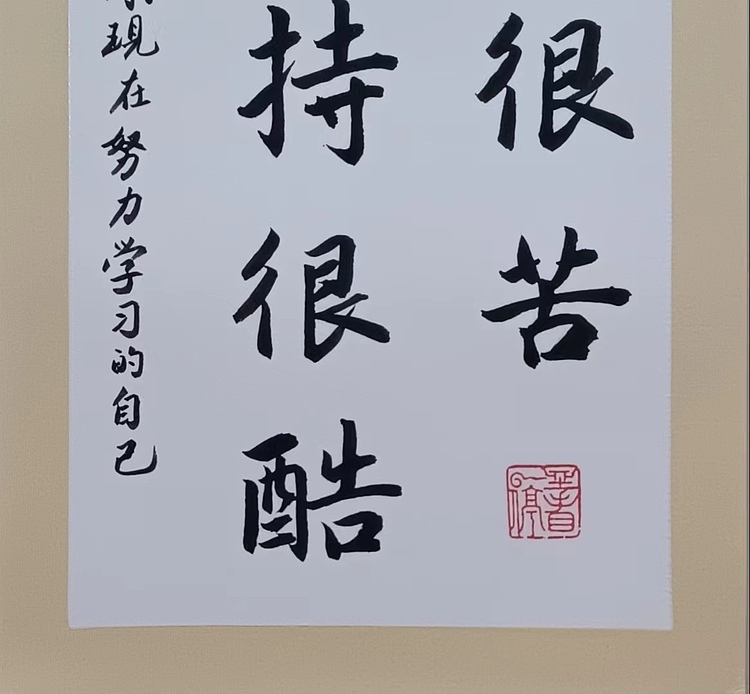 很苦
持很酷
現在努力学习的自己